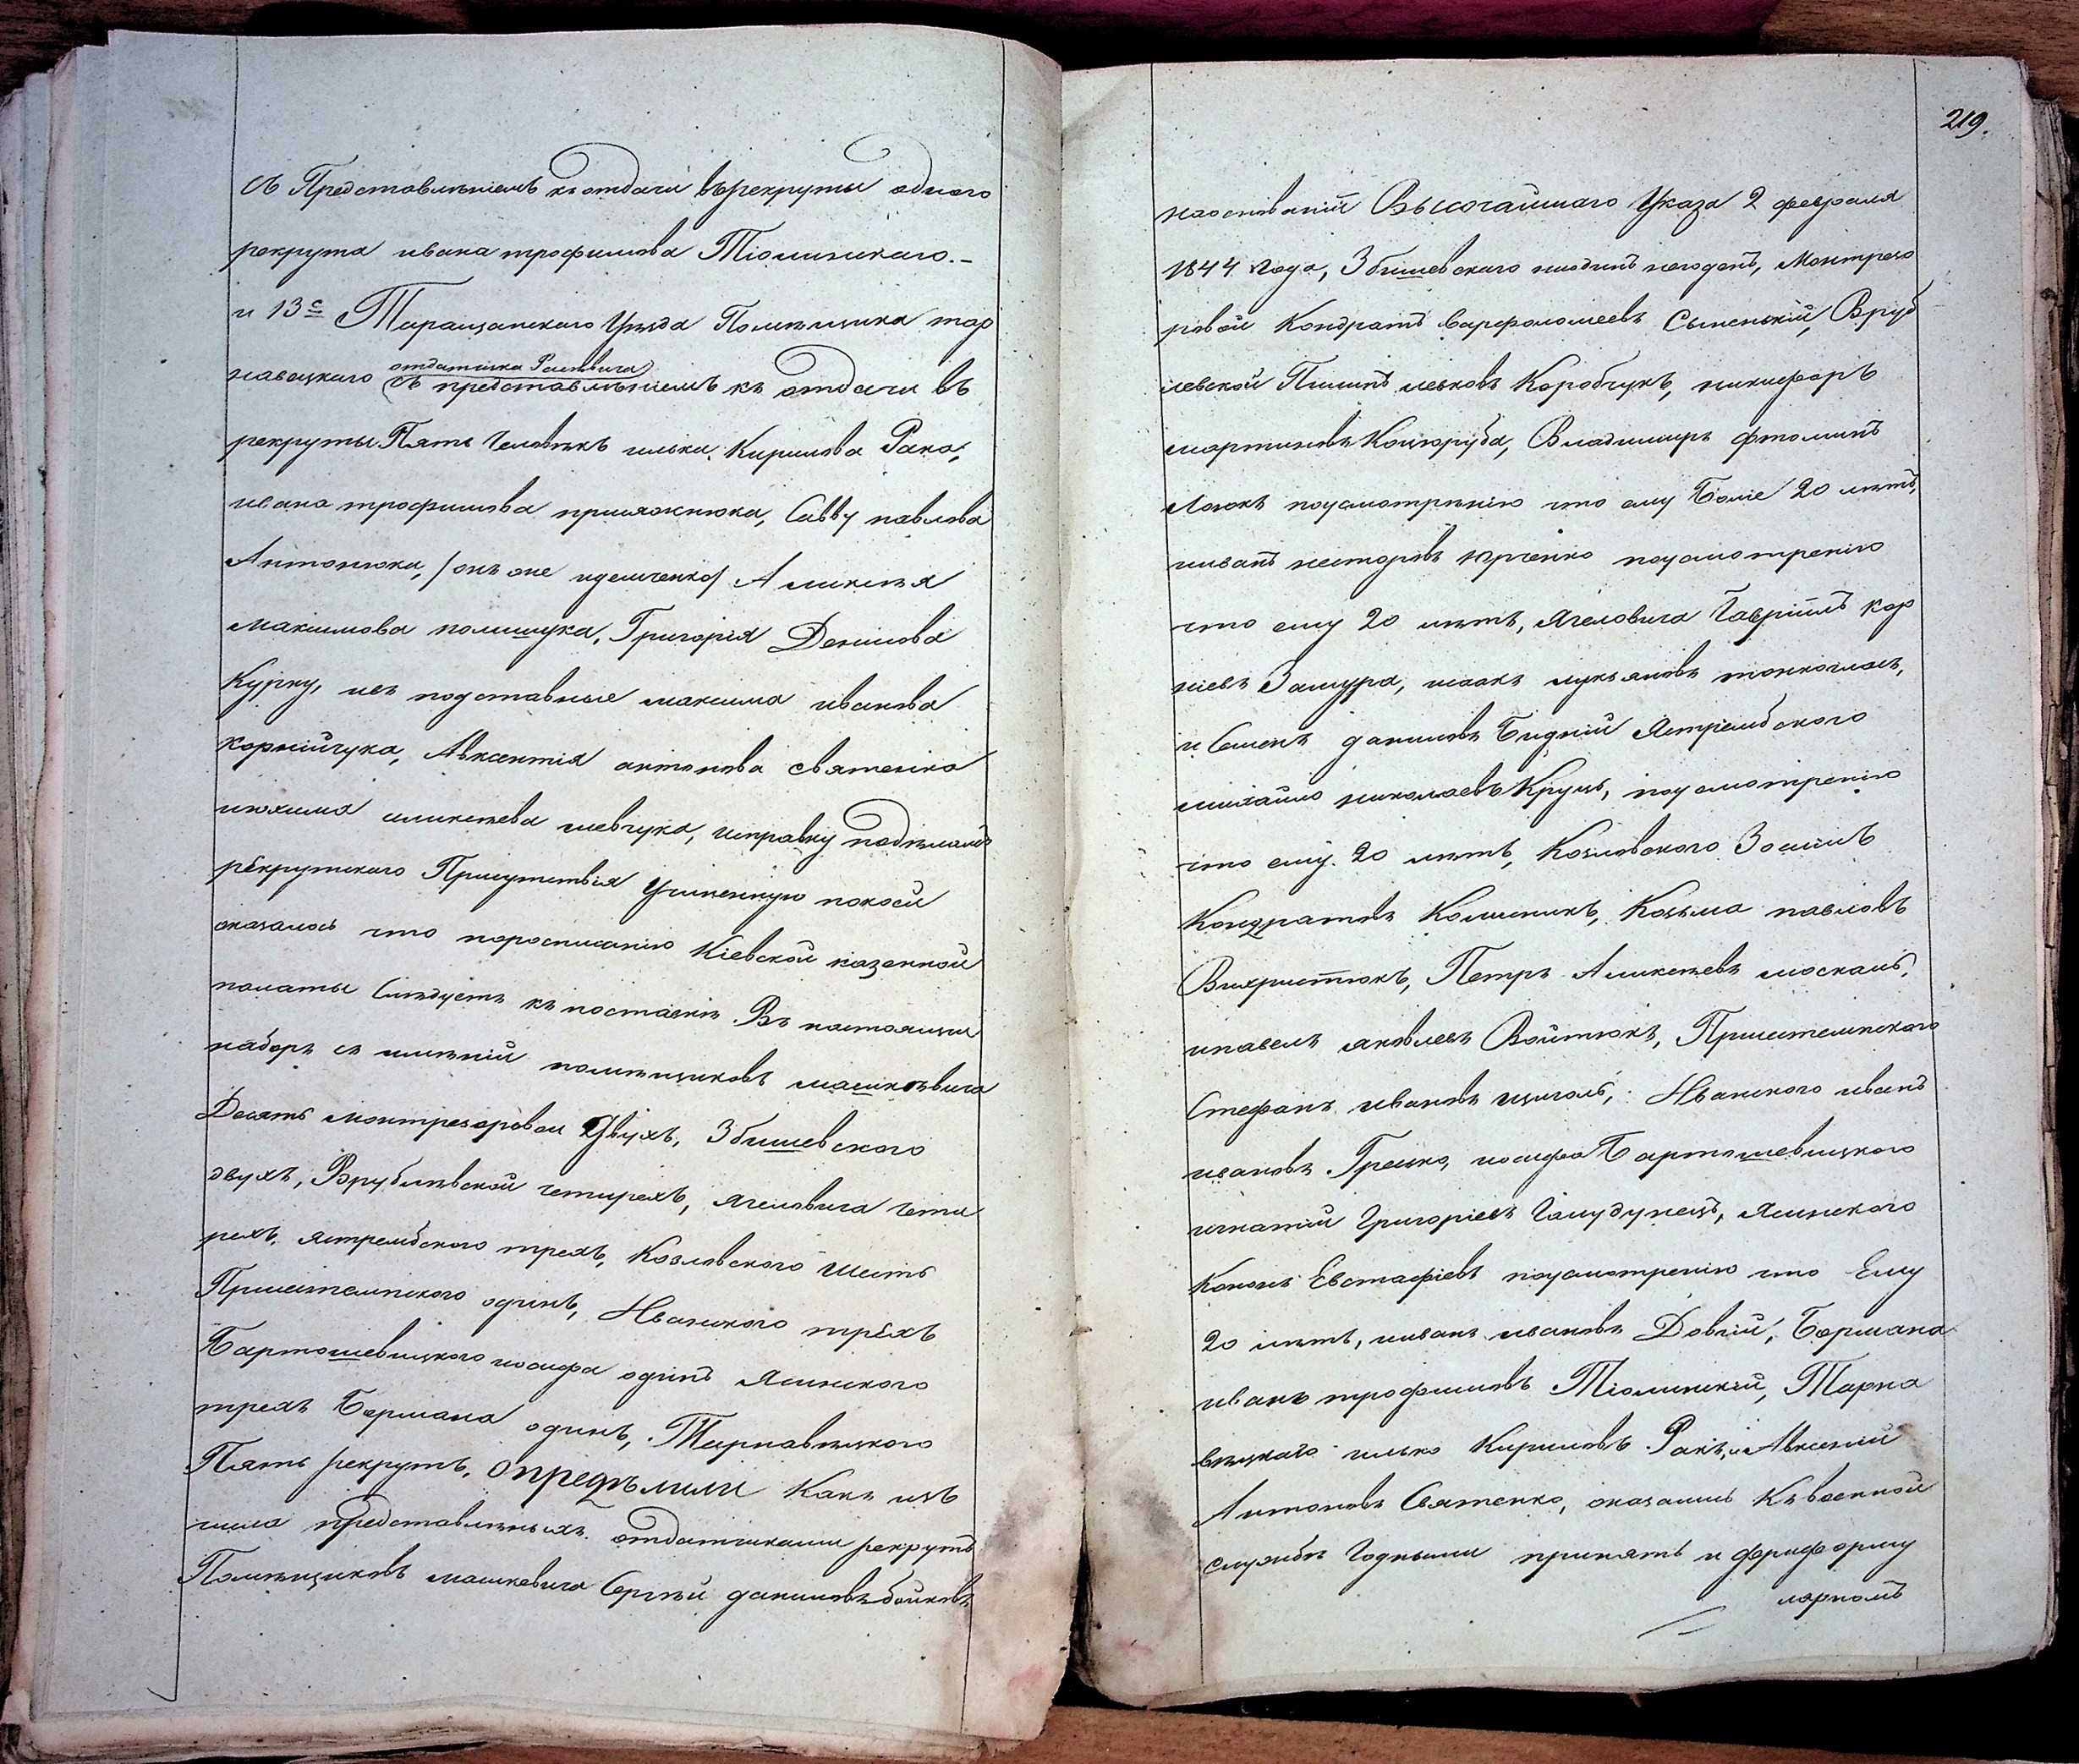 съ Представленіемъ къ отдачи въ рекруты одного
рекрута ивана трофимова Тіолинскаго.-
и 13е Таращанского Уѣзда Помѣщика тар
навецкаго отдатчика Раевича
съ представлѣніемъ къ отдачи въ
рекруты Пять Человѣкъ илька Кирилова Рака,
ивана трофимова приляжнюка, Савву павлова
Антонюка, /онъ же идемченко/ Аликсѣя
максимова полищука, Григорія Данилова
Курку, въ подставные максима иванова
корнійчука, Авксентія антонова святенка
июхима аликсѣева шевчука,
рекрутского Присутствія Учиненную
оказалось что поросписанію Кіевской казенной
палаты Слѣдуетъ къ поставкѣ Въ настоящій
наборъ съ имѣній помѣщиковъ машкевича
Десять монтрезоровой Двухъ, Збышевского
двухъ, Врублѣвской четырехъ, ягеловича четы
рехъ, ястрембского трехъ, Козловского Шесть
одинъ, Иванского трёхъ
Бартошевицкого иосифа одинъ Ясинского
трехъ Бермана одинъ, Тарнавецкого
Пять рекрутъ, опредѣлили Какъ изъ
числа представлѣныхъ отдатчиками рекрутъ
Помѣщиковъ машкевича Сергѣй даниловъ бойковъ
219.
на основаніи Высочайшаго Указа 2 февраля
1844 года, Збышевскаго ниодинъ негоденъ, Монтрезо
ровой Кондратъ варфоломеевъ Сыпенькій, Вруб
левской Пилипъ левковъ Коробчукъ, никифоръ
мартиновъ Коцюруба, Владимиръ
поусмотрѣнію что ему Боліе 20 лѣтъ,
ииванъ несторовъ юрченко поусмотренію
что ему 20 лѣтъ, Ягеловича Гавріилъ кор
ніевъ Замура, исаакъ лукъяновъ
и Семенъ даниловъ Бидный Ястрембского
михайло николаевъ Круць, поусмотренію
что ему 20 лѣтъ, Козловского Зосимъ
Кондратовъ Колисникъ, Козьма павловъ
Вихристюкъ, Петръ Аликсѣевъ москаль,
ипавелъ яковлевъ Войтюкъ,
Стефанъ ивановъ щиголь, Иванского иванъ
ивановъ Грешко, иосифа Бартошевицкого
игнатій Григоріевъ Ясинского
Кононъ Евстафіевъ поусмотренію что Ему
20 лѣтъ, ииванъ ивановъ Довгій, Бермана
иванъ трофимовъ Тіолинскій, Тарна
вецкаго илько Кириловъ Ракъ, и Авксентій
Антоновъ Святенко, оказались Къ военной
службѣ Годными принять и фор
лярномъ